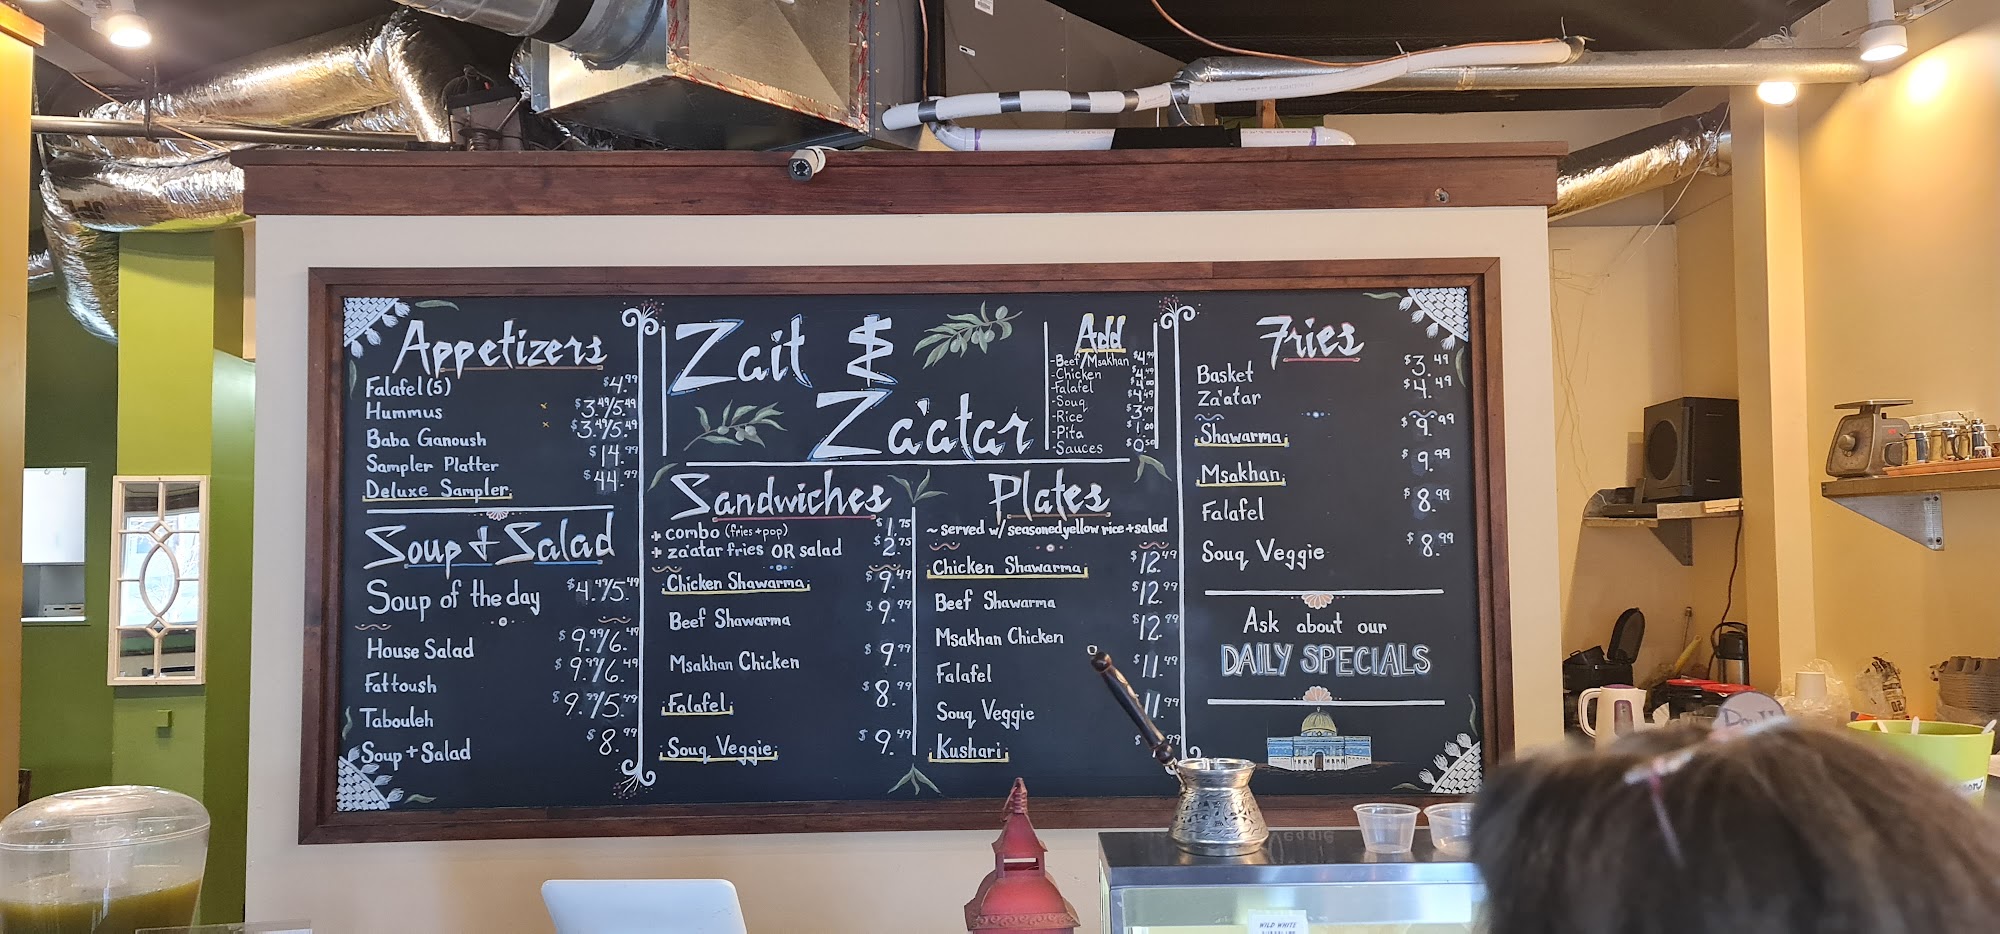 Appetizers
Falafel (5) $4.99
Hummus $3.49/5.49
Baba Ganoush $3.49/5.49
Sampler Platter $14.99
Deluxe Sampler $44.99
Soup & Salad
Soup of the day $4.49/5.49
House Salad $9.99/6.49
Fattoush $9.99/6.49
Tabouleh $9.99/5.49
Soup + Salad $8.99
Zait &
Za'atar
Add
-Beef/Msakhan $4.99
-Chicken $4.49
-Falafel $4.00
-Souq $4.49
-Rice $3.49
-Pita $1.00
-Sauces $0.50
Sandwiches
+ combo (fries + pop) $1.75
+ za'atar fries OR salad $2.75
Chicken Shawarma $9.49
Beef Shawarma $9.99
Msakhan Chicken $9.99
Falafel $8.99
Souq Veggie $9.49
Plates
~ served w/ seasoned yellow rice + salad
Chicken Shawarma $12.49
Beef Shawarma $12.99
Msakhan Chicken $12.99
Falafel $11.49
Souq Veggie 11.99
Kushari $ 99
Fries
Basket $3.49
Za'atar $4.49
Shawarma $9.49
Msakhan $9.99
Falafel $8.99
Souq Veggie $8.99
Ask about our
DAILY SPECIALS
WILD WHITE